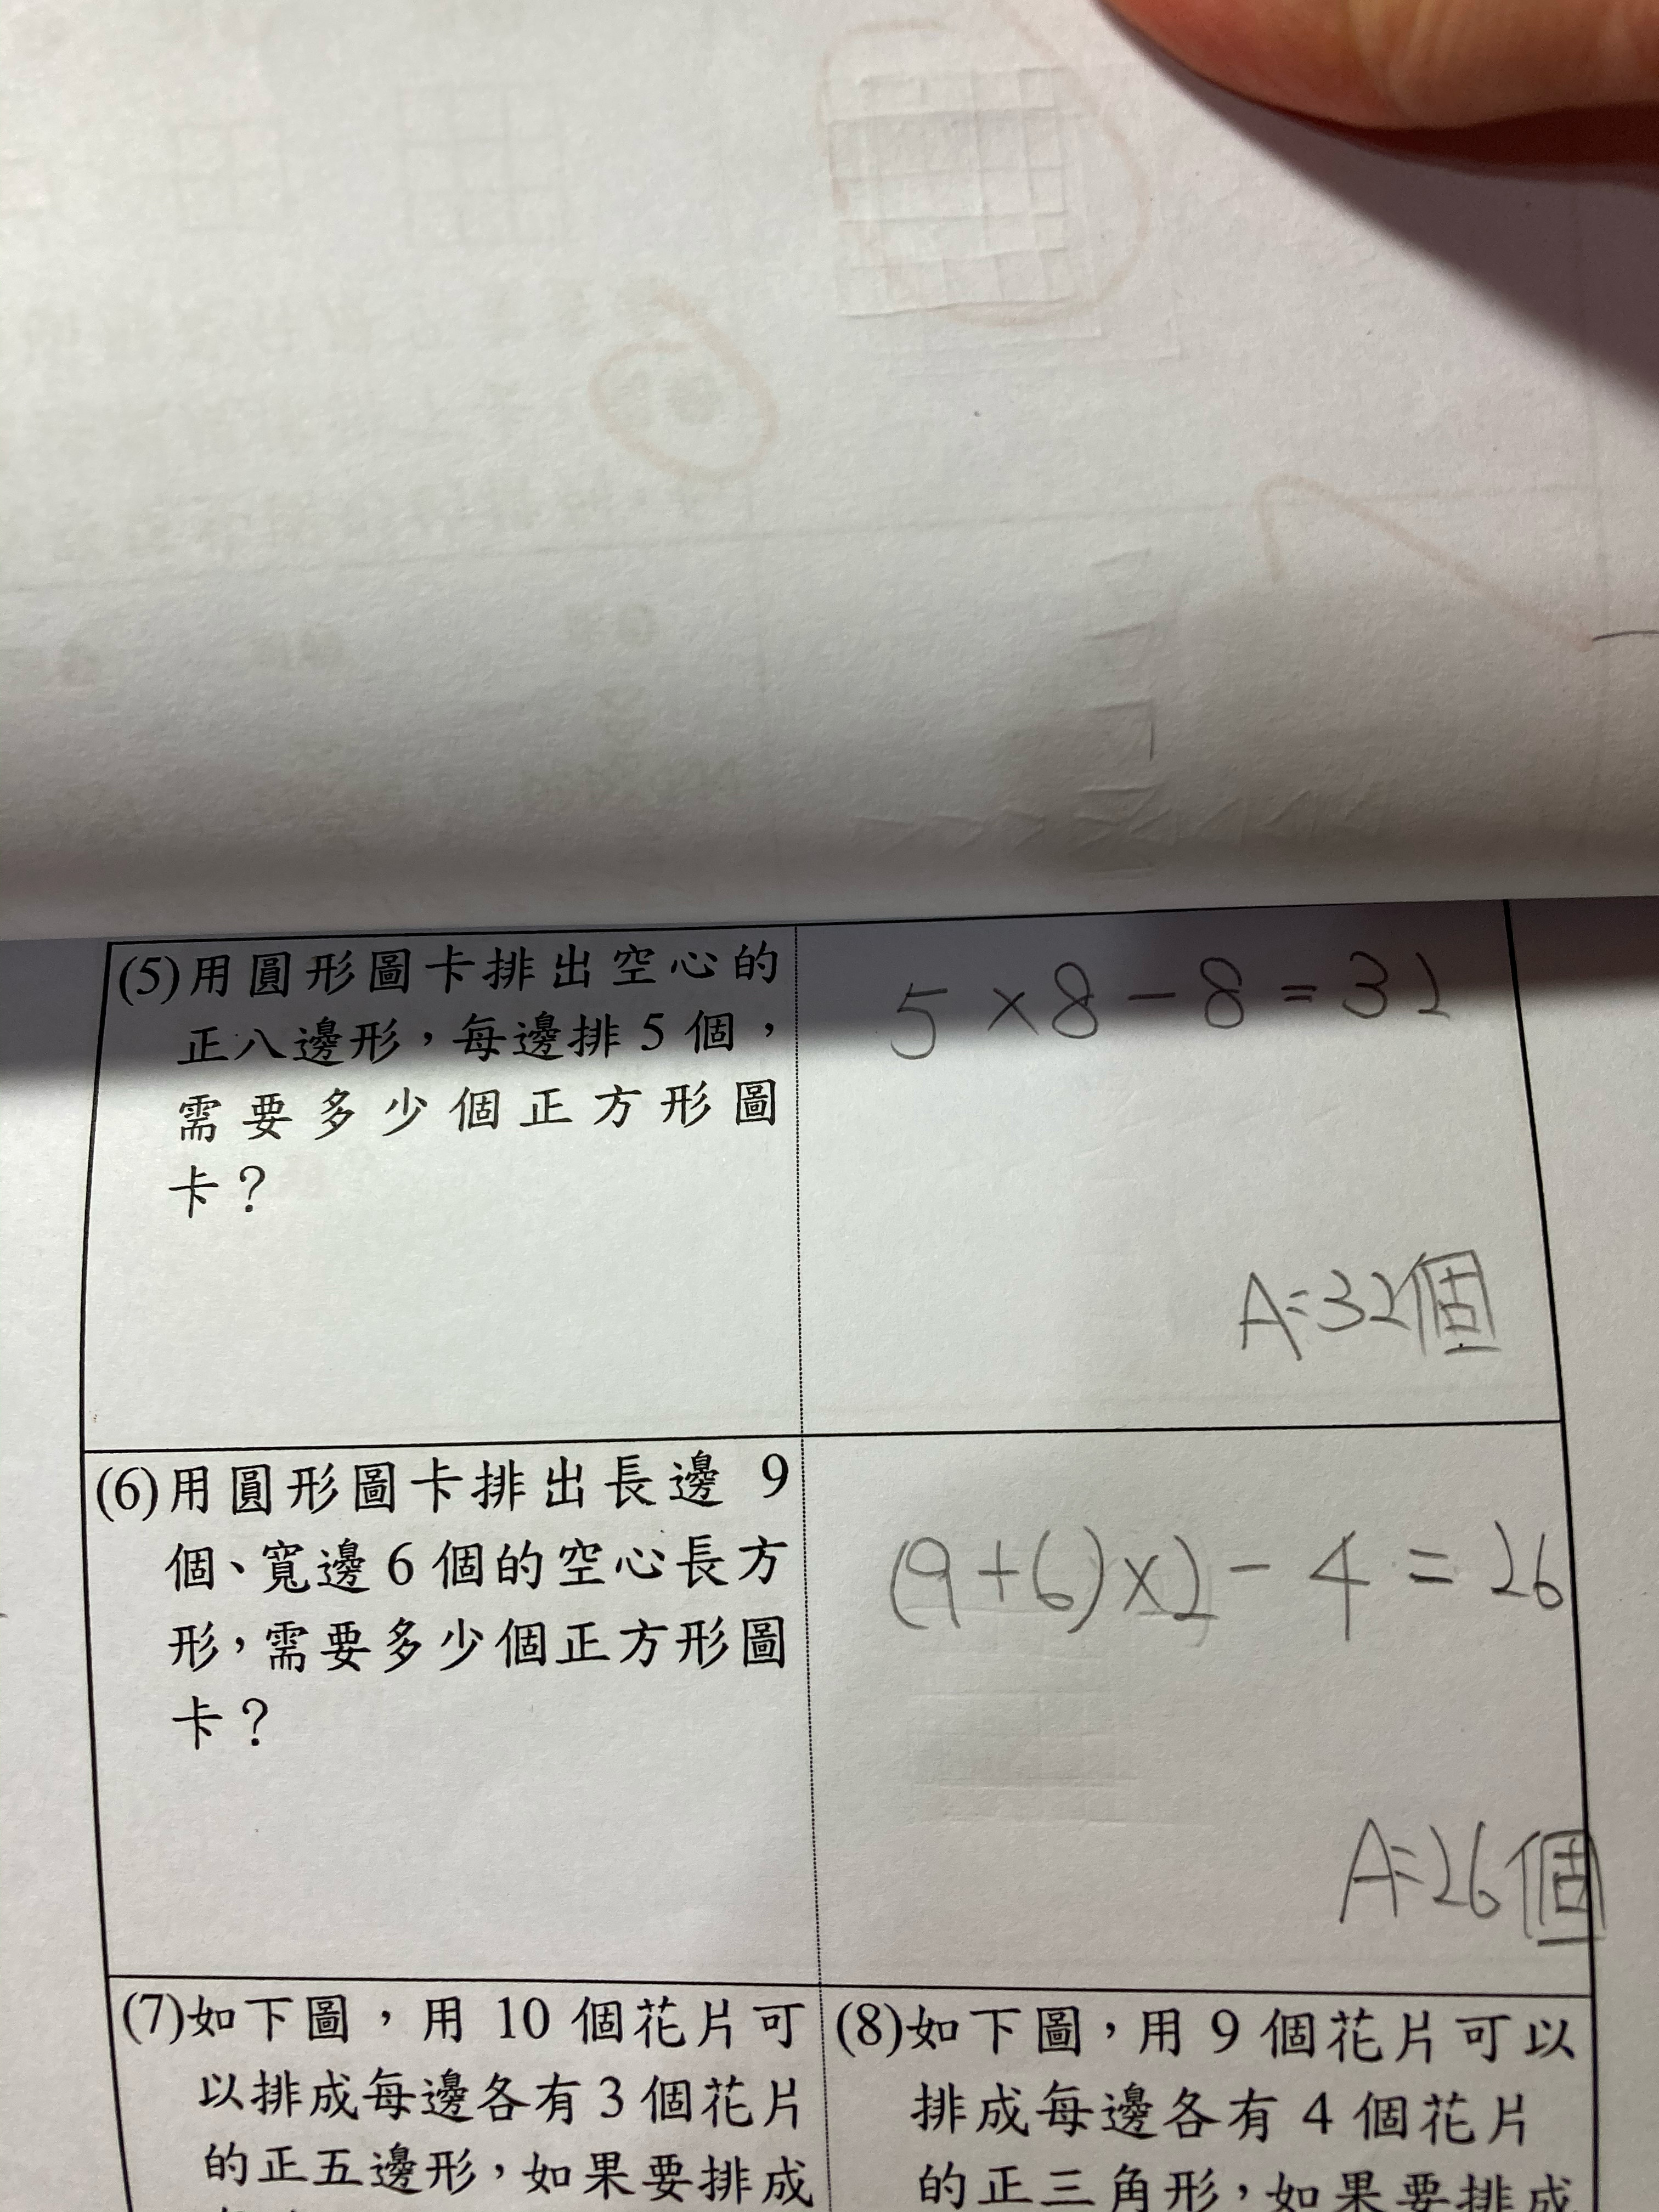 (5)用圓形圖卡排出空心的
正八邊形，每邊排5個，
需要多少個正方形圖
卡？
5×8-8=32
A:32個
(6)用圓形圖卡排出長邊 9
個、寬邊6個的空心長方
形，需要多少個正方形圖
卡？
(9+6)×2-4=26
A:26個
(7)如下圖，用 10 個花片可
以排成每邊各有3個花片
的正五邊形，如果要排成
(8)如下圖，用 9 個花片可以
排成每邊各有 4 個花片
的正三角形，如果要排成